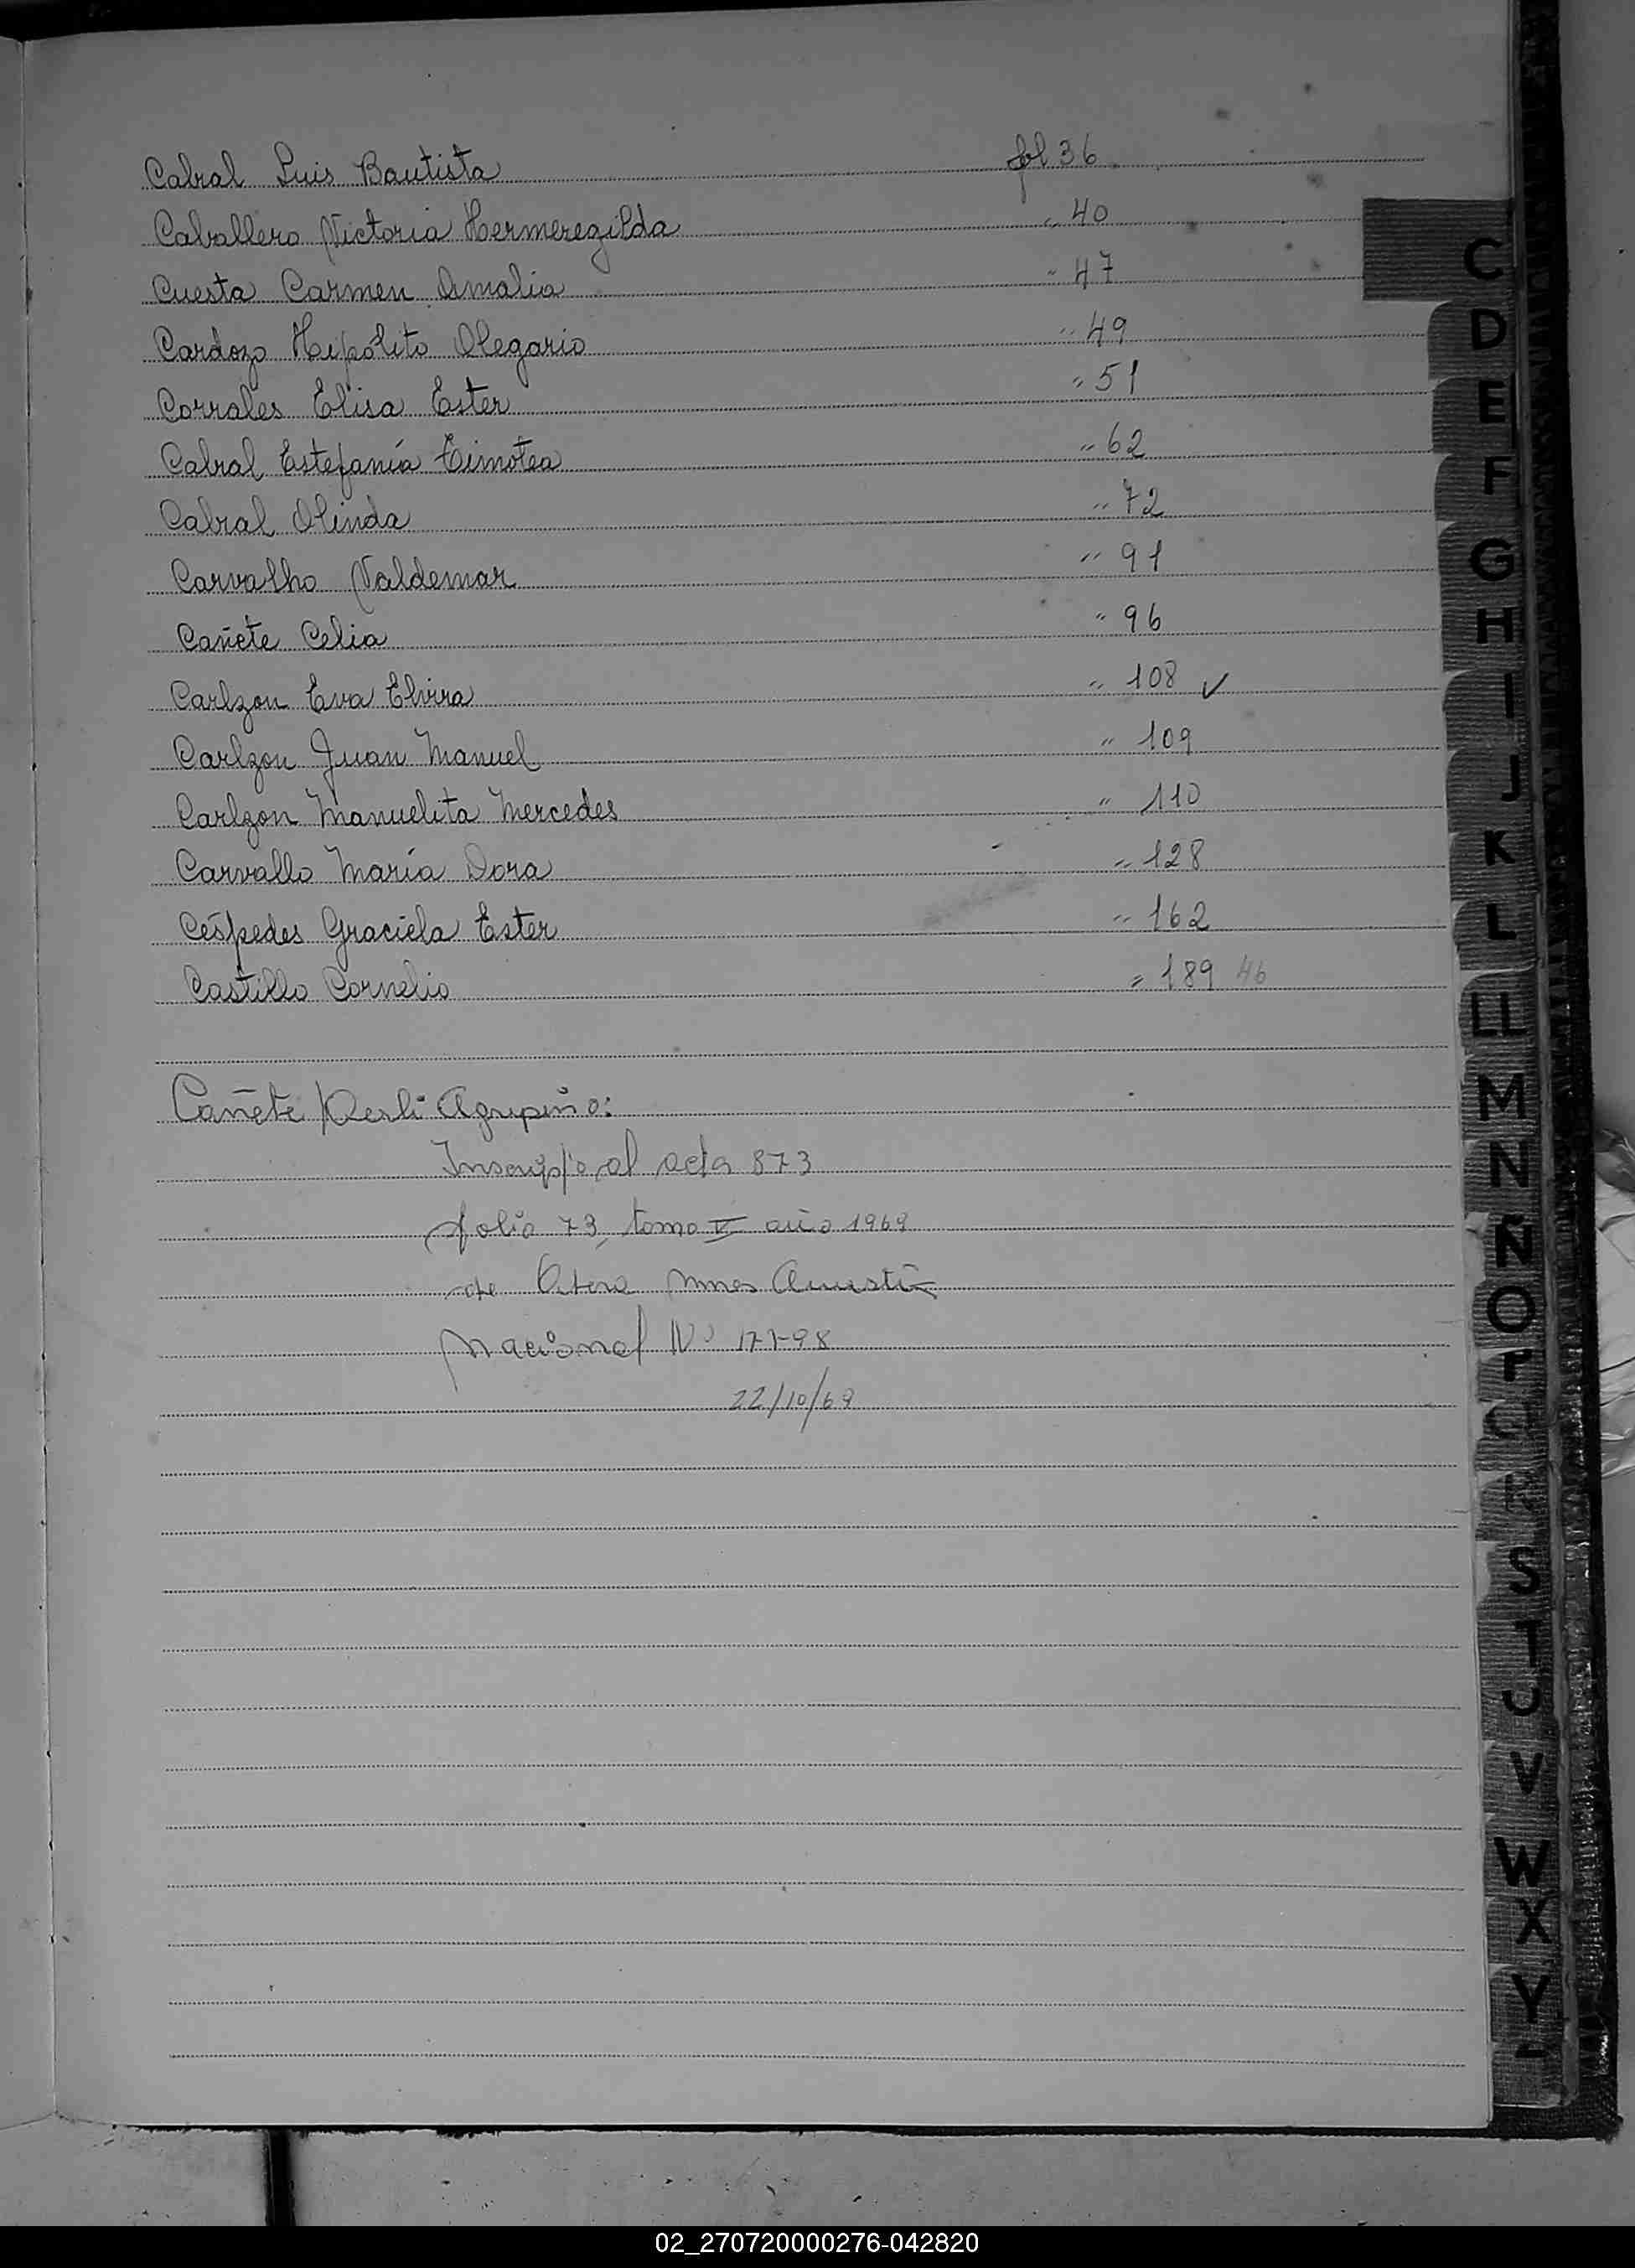 Cabral Luis Bautista fol 36
Caballero Victoria Hermeregilda " 40
Cuesta Carmen Amalia " 47
Cardozo Hipólito Olegario " 49
Corrales Elisa Ester " 51
Cabral Estefanía Timotea " 62
Cabral Olinda " 72
Carvalho Valdemar " 91
Cañete Celia " 96
Carlzon Eva Elvira " 108 ✓
Carlzon Juan Manuel " 109
Carlzon Manuelita Mercedes " 110
Carvallo María Dora " 128
Céspedes Graciela Ester " 162
Castillo Cornelio " 189 46
Cañete Agripino:
Inscripto al acta 873
folio 73, tomo año 1969
de
Nacional Nº
22/10/69
C
D
E
F
G
H
I
J
K
L
LL
M
N
Ñ
O
P
Q
R
S
T
U
V
W
X
Y
02_270720000276-042820